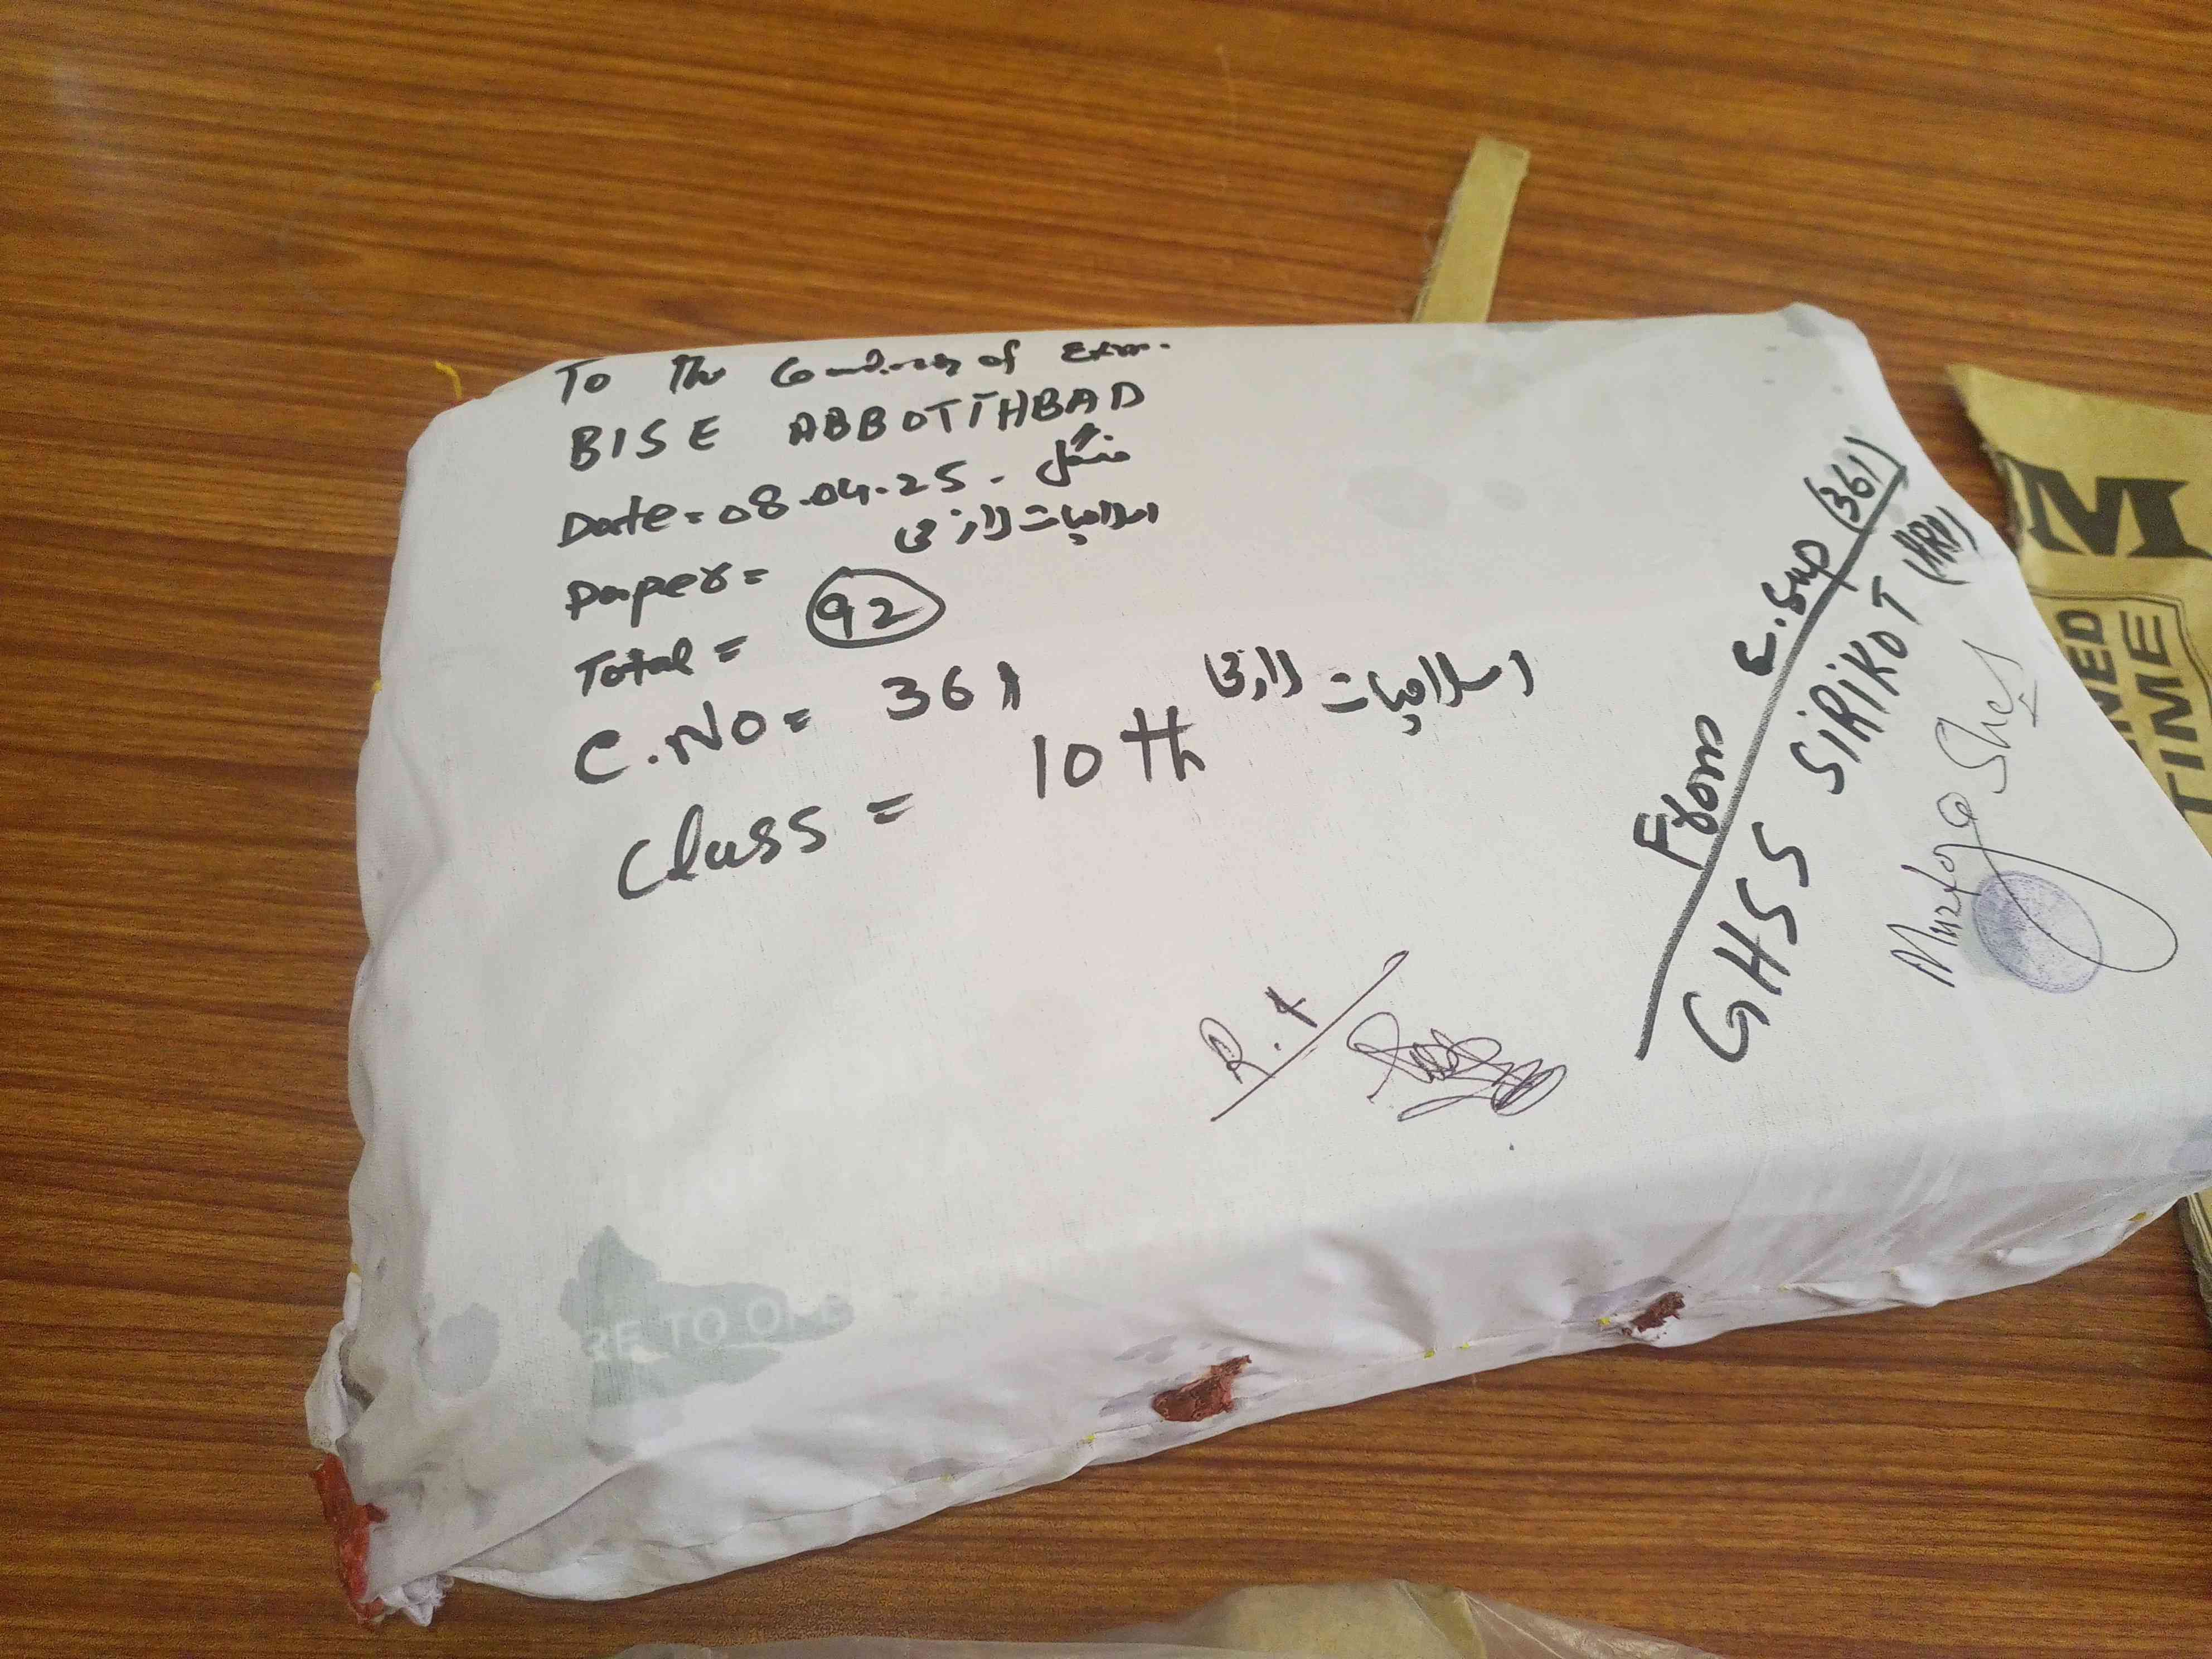 To The Controller of Exam.
BISE ABBOTTABAD
Date = 08.04.25 - منگل
Paper = اسلامیات لازمی
Total = 92
C.No = 361
Class = 10th اسلامیات لازمی
From C.Sup (361)
GHSS SIRIKOT (HRP)
Sher
R.
RE TO OPE
M
NED
TIME